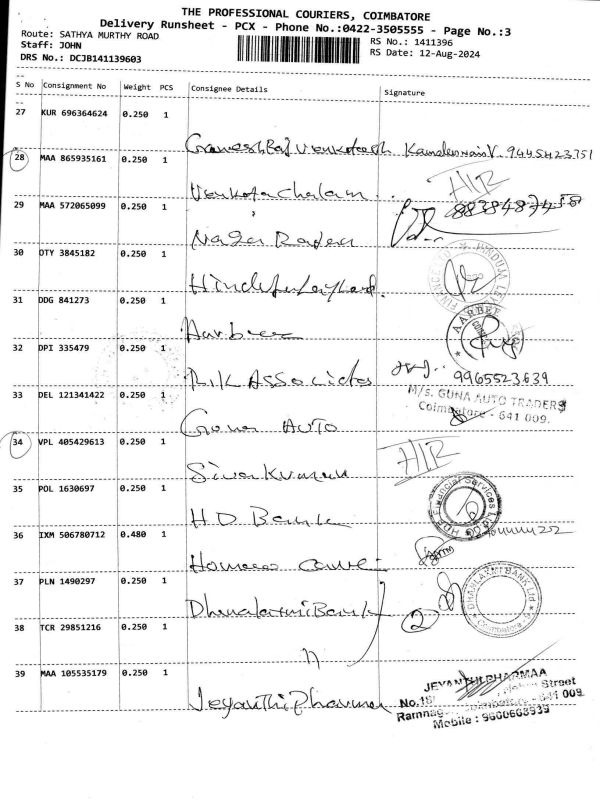 THE PROFESSIONAL COURIERS, COIMBATORE
Delivery Runsheet - PCX - Phone No.:0422-3505555 - Page No.:3
Route: SATHYA MURTHY ROAD
RS No.: 1411396
Staff: JOHN
RS Date: 12-Aug-2024
DRS No.: DCJB141139603
S No Consignment No Weight PCS Consignee Details Signature
27 KUR 696364624 0.250 1
28 MAA 865935161 0.250 1
Venkatachalam
29 MAA 572065099 0.250 1
30 OTY 3845182 0.250 1
31 DDG 841273 0.250 1
AARBEE
32 DPI 335479 0.250 1
RIK Associates
9965523639
33 DEL 121341422 0.250 1
M/s. GUNA AUTO TRADERS
Coimbatore - 641 009.
AUTO
34 VPL 405429613 0.250 1
Sivakumar
35 POL 1630697 0.250 1
HDF Financial Services Ltd
H.D Bank
36 IXM 506780712 0.480 1
37 PLN 1490297 0.250 1
DHANLAXMI BANK Ltd
Coimbatore
Dhanalaxmi Bank
2
38 TCR 29851216 0.250 1
39 MAA 105535179 0.250 1
Jeyanthi Pharma
JEYANTHI PHARMAA
Street
Coimbatore - 641 009
Mobile : 9600603939